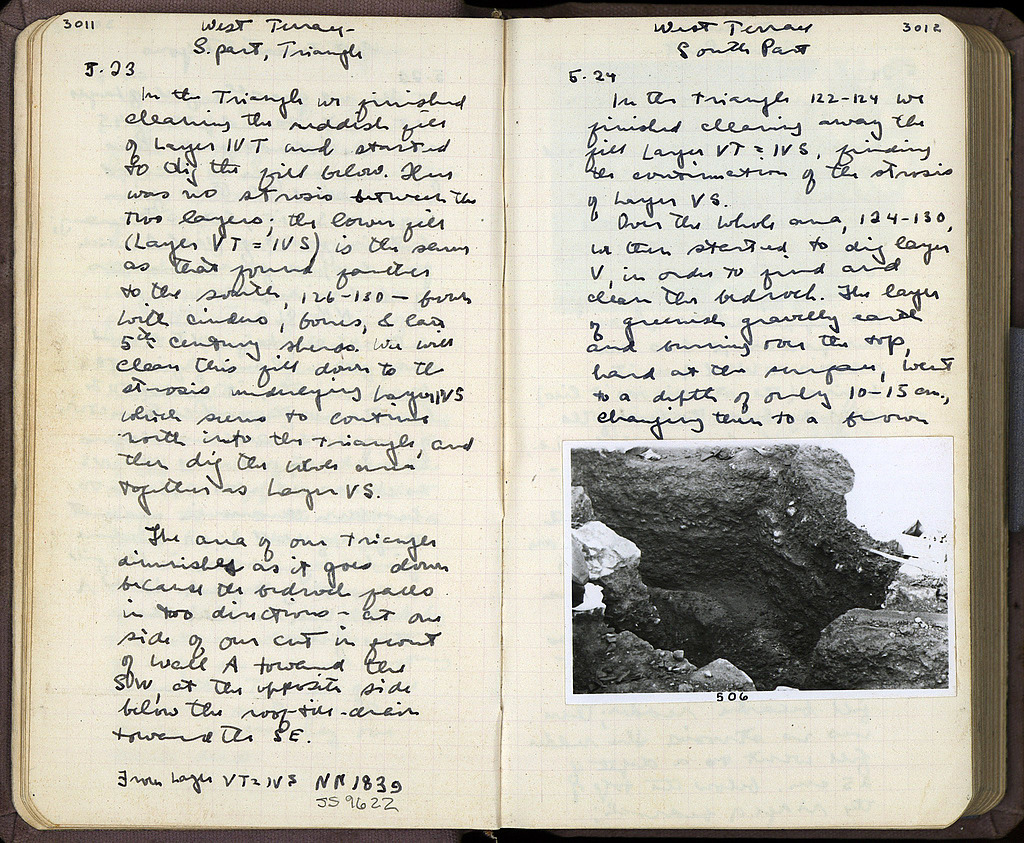 3011
West Terrace
S. part, Triangle
5.23
In the Triangle we finished
clearing the reddish fill
of Layer IV T and started
to dig the fill below. There
was no strosis between the
two layers; the lower fill
(Layer VT = IVS) is the same
as that found further
to the south, 126-130 — brown
with cinders, bones, & late
5th century sherds. We will
clean this fill down to the
strosis underlying Layer IVS
which seems to continue
north into the triangle, and
then dig the whole area
together as Layer VS.
The area of our triangle
diminishes as it goes down
because the bedrock falls
in two directions - at one
side of our cut in front
of Wall A toward the
SW, at the opposite side
below the roof-tile-drain
toward the SE.
From Layer VT = IVS NN 1839
JS 962Z
3012
West Terrace
South Part
5.24
In the triangle 122-124 we
finished clearing away the
fill Layer VT = IVS, finding
the continuation of the strosis
of Layer VS.
Over the whole area, 124-130,
we then started to dig layer
V, in order to find and
clean the bedrock. The layer
of greenish gravelly earth
and burning over the top,
hard at the surface, went
to a depth of only 10-15 cm.,
changing then to a brown
506